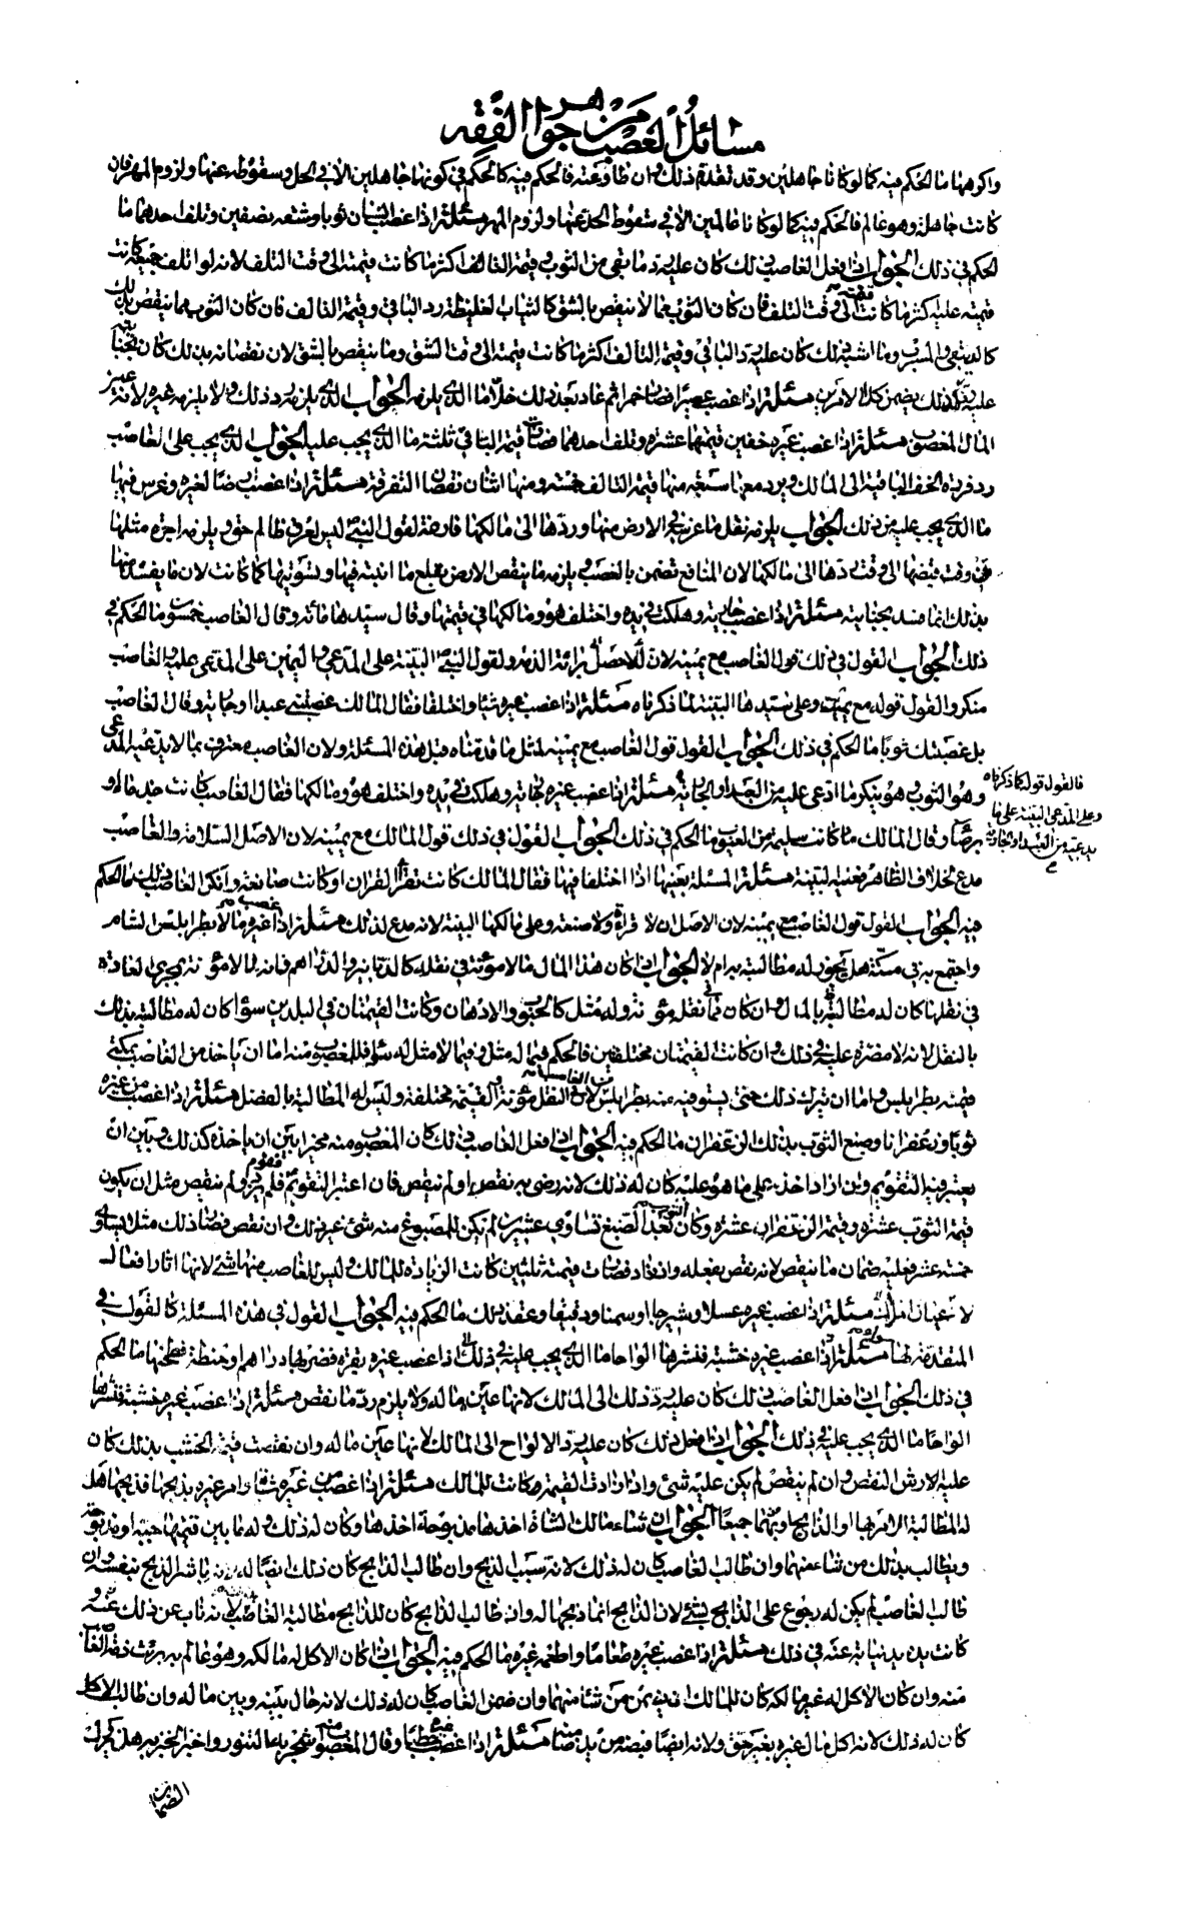 مسائل الغصب من جواهر الفقه
واكرهها ما الحكم فيه كما لو كانا جاهلين وقد تقدم ذلك وان طاوعته فالحكم فيه كالحكم في كونهما جاهلين الا في الحد وسقوطه عنها ولزوم المهر فان
كانت جاهلة وهو عالم فالحكم فيه كما لو كانا عالمين الا في سقوط الحد عنها ولزوم المهر مسئلة اذا غصب انسان ثوبا وشقه بنصفين وتلف احدهما ما
الحكم في ذلك الجواب اذا فعل الغاصب ذلك كان عليه رد ما بقى من الثوب وقيمة التالف اكثر ما كانت قيمته الى وقت التلف لانه لو اتلف جميعه كانت
قيمته عليه اكثر ما كانت الى وقت التلف فان كان الثوب مما لا ينقص بالشق كالثياب الغليظة رد الباقي وقيمة التالف فان كان الثوب مما ينقص بذلك
كالدبيقي والشرب وما اشبه ذلك كان عليه رد الباقي وقيمة التالف اكثر ما كانت قيمته الى وقت الشق وما ينقص بالشق لان نقصانه بذلك كان بجنايته
عليه فلذلك يضمن كلا الامرين مسئلة اذا غصب عصيرا فصار خمرا ثم عاد بعد ذلك خلا ما الذي يلزمه الجواب الذي يلزمه رد ذلك ولا يلزمه غيره لانه عين
المال المغصوب مسئلة اذا غصب غيره خفين قيمتهما عشرة وتلف احدهما فصار قيمة الباقي ثلثة ما الذي يجب عليه الجواب الذي يجب على الغاصب
رد فردة الخف الباقية الى المالك ويرد معها سبعة منها قيمة التالف خمسة ومنها اثنان نقصان التفرقة مسئلة اذا غصب ارضا لغيره وغرس فيها
ما الذي يجب عليه من ذلك الجواب يلزمه نقل ما غرز في الارض منها وردها الى مالكها فارغة لقول النبي ليس لعرق ظالم حق ويلزمه اجرة مثلها
من وقت قبضها الى وقت ردها الى مالكها لان المنافع تضمن بالغصب ويلزمه ما ينقص الارض بقلع ما انبته فيها وتسويتها كما كانت لان ما يفسد منها
بذلك انما فسد بجنايته مسئلة اذا غصب جارية وهلكت في يده واختلف هو ومالكها في قيمتها وقال سيدها مائة وقال الغاصب خمسون ما الحكم في
ذلك الجواب القول في ذلك قول الغاصب مع يمينه لان الاصل برائة الذمة ولقول النبي البينة على المدعي واليمين على المدعى عليه والغاصب
منكر والقول قوله مع يمينه وعلى سيدها البينة لما ذكرناه مسئلة اذا غصب غيره شيئا واختلفا فقال المالك غصبتني عبدا او جارية وقال الغاصب
بل غصبتك ثوبا ما الحكم في ذلك الجواب القول قول الغاصب مع يمينه لمثل ما قدمناه قبل هذه المسئلة ولان الغاصب معترف بما لا يدعيه المدعى
وهو الثوب وهو ينكر ما ادعى عليه من العبد او الجارية مسئلة اذا غصب غيره جارية وهلكت في يده واختلف هو ومالكها فقال الغاصب كانت جذماء او
فالقول قوله كما ذكرناه
وعلى المدعى البينة على ما
يدعيه من العبد او الجارية
برصاء وقال المالك ما كانت سليمة من العيوب ما الحكم في ذلك الجواب القول في ذلك قول المالك مع يمينه لان الاصل السلامة والغاصب
مدع لخلاف الظاهر فعليه البينة مسئلة المسئلة بعينها اذا اختلفا فيها فقال المالك كانت تقرأ القران او كانت صانعة وانكر الغاصب ذلك ما الحكم
فيه الجواب القول قول الغاصب مع يمينه لان الاصل ان لا قرائة ولا صنعة وعلى مالكها البينة لانه مدع لذلك مسئلة اذا غصب غيره مالا بطرابلس الشام
واجتمع به في مكة هل يجوز له مطالبته به ام لا الجواب اذا كان هذا المال مالا مؤنة في نقله كالدنانير والدراهم فانه مما لا مؤنة بمجرى العادة
في نقلها كان له مطالبته بالمال وان كان مما في نقله مؤنة وله مثل كالحبوب والادهان وكانت القيمتان في البلدين سواء كان له مطالبته بذلك
بالنقل لانه لا مضرة عليه في ذلك وان كانت القيمتان مختلفين فالحكم فيما له مثل وفيما لا مثل له سواء فللمغصوب منه اما ان ياخذ من الغاصب بمكة
قيمته بطرابلس واما ان يترك ذلك حتى يستوفيه منه بطرابلس لان في النقل مؤنة والقيمة مختلفة وليس له المطالبة بالفضل مسئلة اذا غصب من غيره
ثوبا وزعفرانا وصبغ الثوب بذلك الزعفران ما الحكم فيه الجواب اذا فعل الغاصب ذلك كان المغصوب منه مخيرا بين ان ياخذه كذلك وبين ان
يعتبر فيه التقويم فان اراد اخذه على ما هو عليه كان له ذلك لانه رضي به نقص او لم ينقص فان اعتبر التقويم فلم يزد ولم ينقص مثل ان يكون
قيمة الثوب عشرة وقيمة الزعفران عشرة وكان الثوب بعد الصبغ تساوي عشرين لم يكن للمصبوغ منه شئ غير ذلك وان نقص فصار ذلك مثلا يساوي
خمسة عشر فعليه ضمان ما ينقص لانه نقص بفعله وان زاد فصارت قيمته ثلثين كانت الزيادة للمالك وليس للغاصب منها شئ لانها اثار افعال
لا عيان اموال مسئلة اذا غصب غيره عسلا وشيرجا او سمنا ودقيقا وعقد ذلك ما الحكم فيه الجواب القول في هذه المسئلة كالقول في
المتقدمة لها مسئلة اذا غصب غيره خشبة فنشرها الواحا ما الذي يجب عليه في ذلك اذا غصب غيره نقرة فضربها دراهم او حنطة فطحنها ما الحكم
في ذلك الجواب اذا فعل الغاصب ذلك كان عليه رد ذلك الى المالك لانها عين ماله ولا يلزم رد ما نقص مسئلة اذا غصب غيره خشبة فنشرها
الواحا ما الذي يجب عليه في ذلك الجواب اذا فعل ذلك كان عليه رد الالواح الى المالك لانها عين ماله وان نقصت قيمة الخشب بذلك كان
عليه الارش النقص وان لم ينقص لم يكن عليه شئ واذا زادت القيمة كانت للمالك مسئلة اذا غصب من غيره شاة وامر غيره بذبحها فذبحها هل
له المطالبة الامر بها او الذابح او بهما جميعا الجواب ان شاء مالك الشاة اخذها مذبوحة اخذها وكان له ذلك وله ما بين قيمتها حية او مذبوحة
ويطالب بذلك من شاء منهما وان طالب الغاصب كان له ذلك لانه سبب الذبح وان طالب الذابح كان ذلك ايضا له لانه باشر الذبح بنفسه وان
طالب الغاصب لم يكن له رجوع على الذابح بشئ لان الذابح انما ذبحها له وان طالب الذابح كان للذابح مطالبة الغاصب لانه ناب عن ذلك عنه و
كانت يده يد نيابة عنه في ذلك مسئلة اذا غصب غيره طعاما واطعمه غيره ما الحكم فيه الجواب اذا كان الاكل له مالكه وهو عالم به برئت ذمة الغاصب
منه وان كان الاكل له غير مالكه كان للمالك ان يضمن من شاء منهما وان ضمن الغاصب كان له ذلك لانه حال بينه وبين ماله وان طالب الاكل
كان له ذلك لانه اكل مال غيره بغير حق ولانه ايضا قبضه من يد ضامنه مسئلة اذا غصب حطبا وقال المغصوب منه اسجر به التنور واخبز الخبز به هل يزول
الضمان